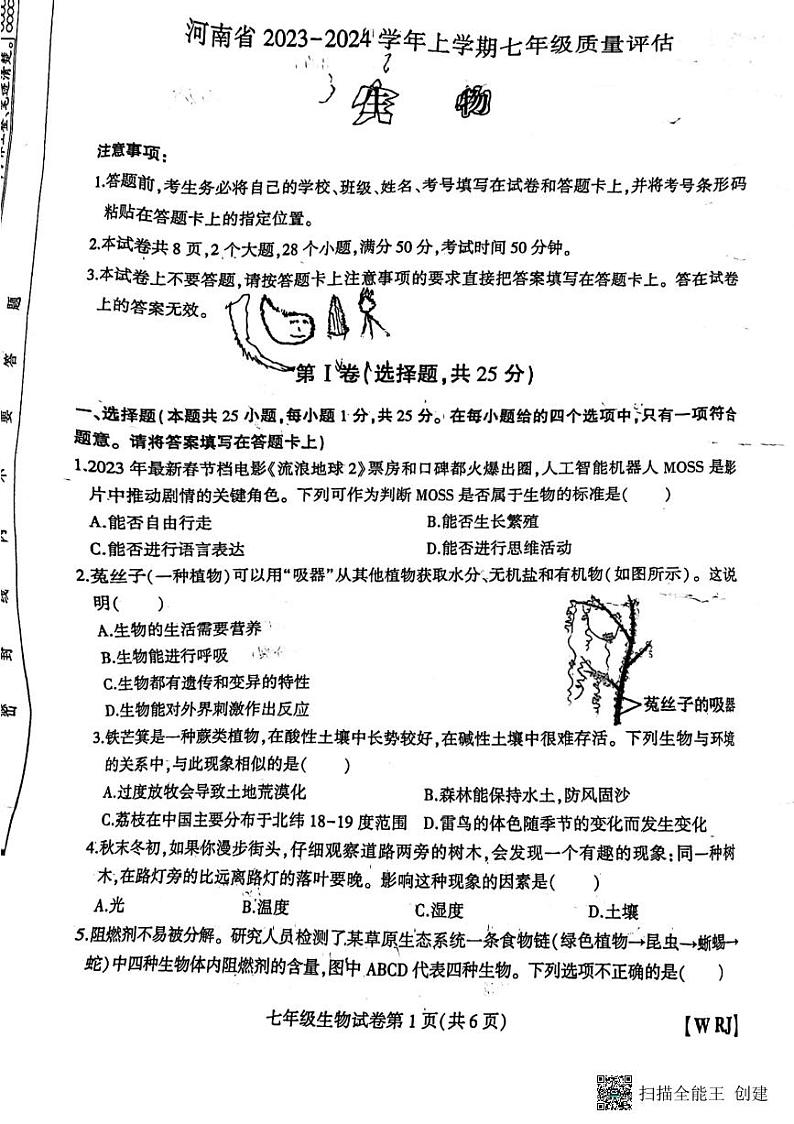 河南省 2023-2024 学年上学期七年级质量评估
生 物
注意事项:
1.答题前,考生务必将自己的学校、班级、姓名、考号填写在试卷和答题卡上,并将考号条形码
粘贴在答题卡上的指定位置。
2.本试卷共 8 页,2 个大题,28 个小题,满分 50 分,考试时间 50 分钟。
3.本试卷上不要答题,请按答题卡上注意事项的要求直接把答案填写在答题卡上。答在试卷
上的答案无效。
第 I 卷(选择题,共 25 分)
一、选择题(本题共 25 小题,每小题 1 分,共 25 分。在每小题给的四个选项中,只有一项符合
题意。请将答案填写在答题卡上)
1.2023 年最新春节档电影《流浪地球 2》票房和口碑都火爆出圈,人工智能机器人 MOSS 是影
片中推动剧情的关键角色。下列可作为判断 MOSS 是否属于生物的标准是( )
A.能否自由行走 B.能否生长繁殖
C.能否进行语言表达 D.能否进行思维活动
2.菟丝子(一种植物)可以用“吸器”从其他植物获取水分、无机盐和有机物(如图所示)。这说
明( )
A.生物的生活需要营养
B.生物能进行呼吸
C.生物都有遗传和变异的特性
D.生物能对外界刺激作出反应
菟丝子的吸器
3.铁芒萁是一种蕨类植物,在酸性土壤中长势较好,在碱性土壤中很难存活。下列生物与环境
的关系中,与此现象相似的是( )
A.过度放牧会导致土地荒漠化 B.森林能保持水土,防风固沙
C.荔枝在中国主要分布于北纬 18-19 度范围 D.雷鸟的体色随季节的变化而发生变化
4.秋末冬初,如果你漫步街头,仔细观察道路两旁的树木,会发现一个有趣的现象:同一种树
木,在路灯旁的比远离路灯的落叶要晚。影响这种现象的因素是( )
A.光 B.温度 C.湿度 D.土壤
5.阻燃剂不易被分解。研究人员检测了某草原生态系统一条食物链(绿色植物→昆虫→蜥蜴→
蛇)中四种生物体内阻燃剂的含量,图中 ABCD 代表四种生物。下列选项不正确的是( )
七年级生物试卷第 1 页(共 6 页)
【W RJ】
密 封 线 内 不 要 答 题
扫描全能王 创建